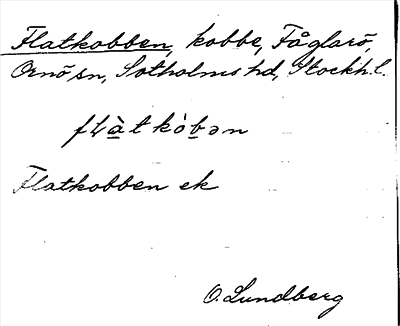 Flatkobben, kobbe, Fåglarö,
Ornö sn, Sotholms hd, Stockh. l.
flàtkòbən
Flatkobben ek
O. Lundberg